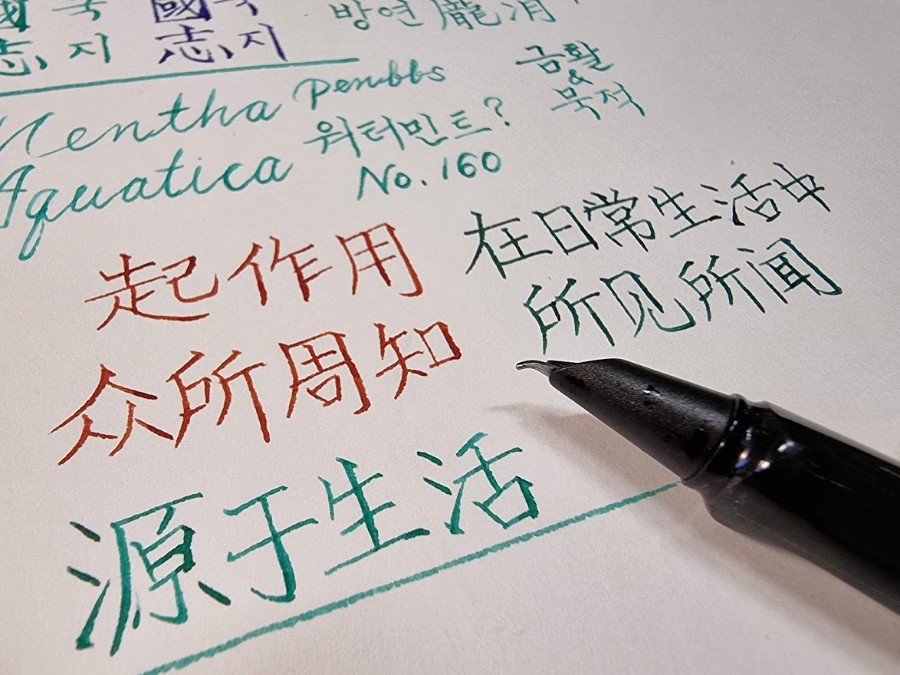 國 국 國 국
志, 지 志, 지
방연 龐涓
금활
&
묵적
Mentha Penbbs
Aquatica 워터민트?
No. 160
起作用
众所周知
在日常生活中
所见所闻
源于生活